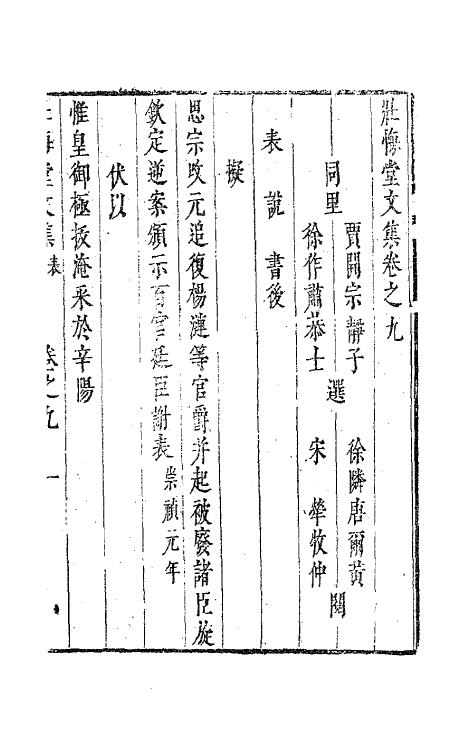 壯悔堂文集卷之九
賈開宗靜子 徐隣唐爾黃
同里 選 閱
徐作肅恭士 宋犖牧仲
表 說 書後
擬
思宗改元追復楊漣等官爵并起被廢諸臣旋
欽定逆案頒示百官廷臣謝表崇禎元年
伏以
惟皇御極扳淹采於辛陽
悔堂文集 表 卷之九 一